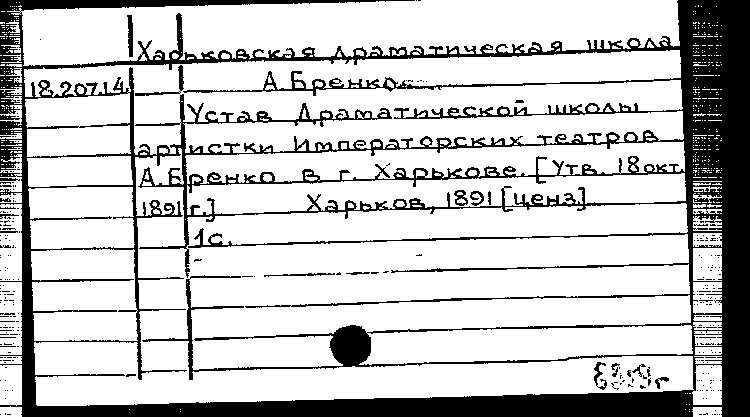 Харьковская драматическая школа
18.207.1.4. А. Бренко
Устав Драматической школы
артистки Императорских театров
А. Бренко в г. Харькове. [Утв. 18 окт.
1891 г.] Харьков, 1891 [ценз]
1с.